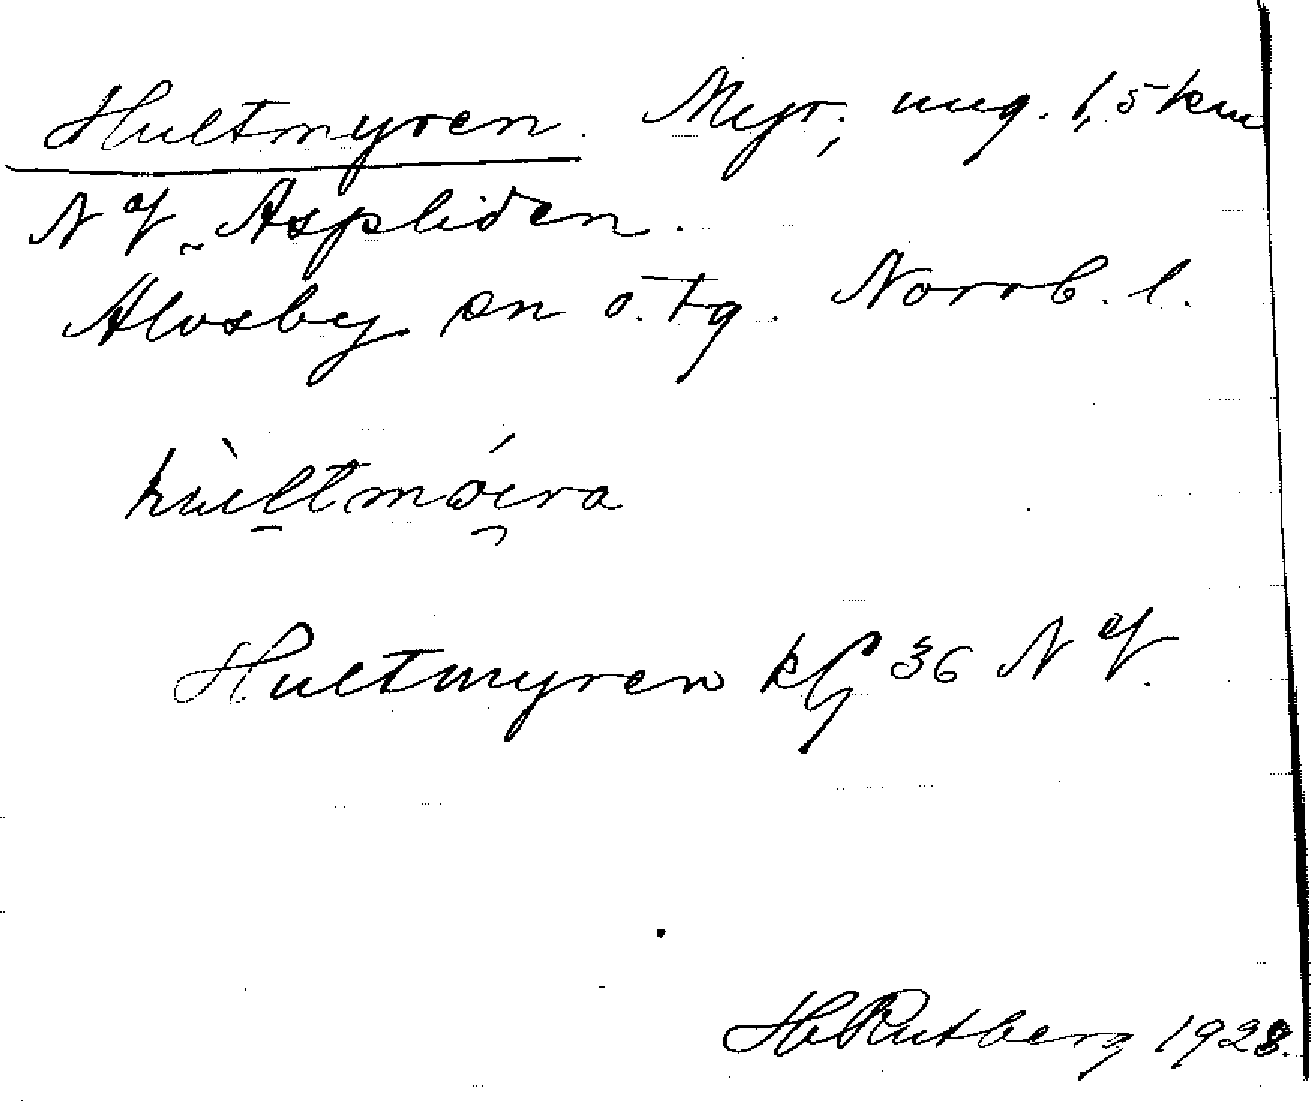 Hultmyren. Myr, ung. 1,5 km
N of Aspliden.
Älvsby sn o. tg. Norrb. l.
hùltmǿira
Hultmyren kfl 36 N of.
H. Rutberg 1928.